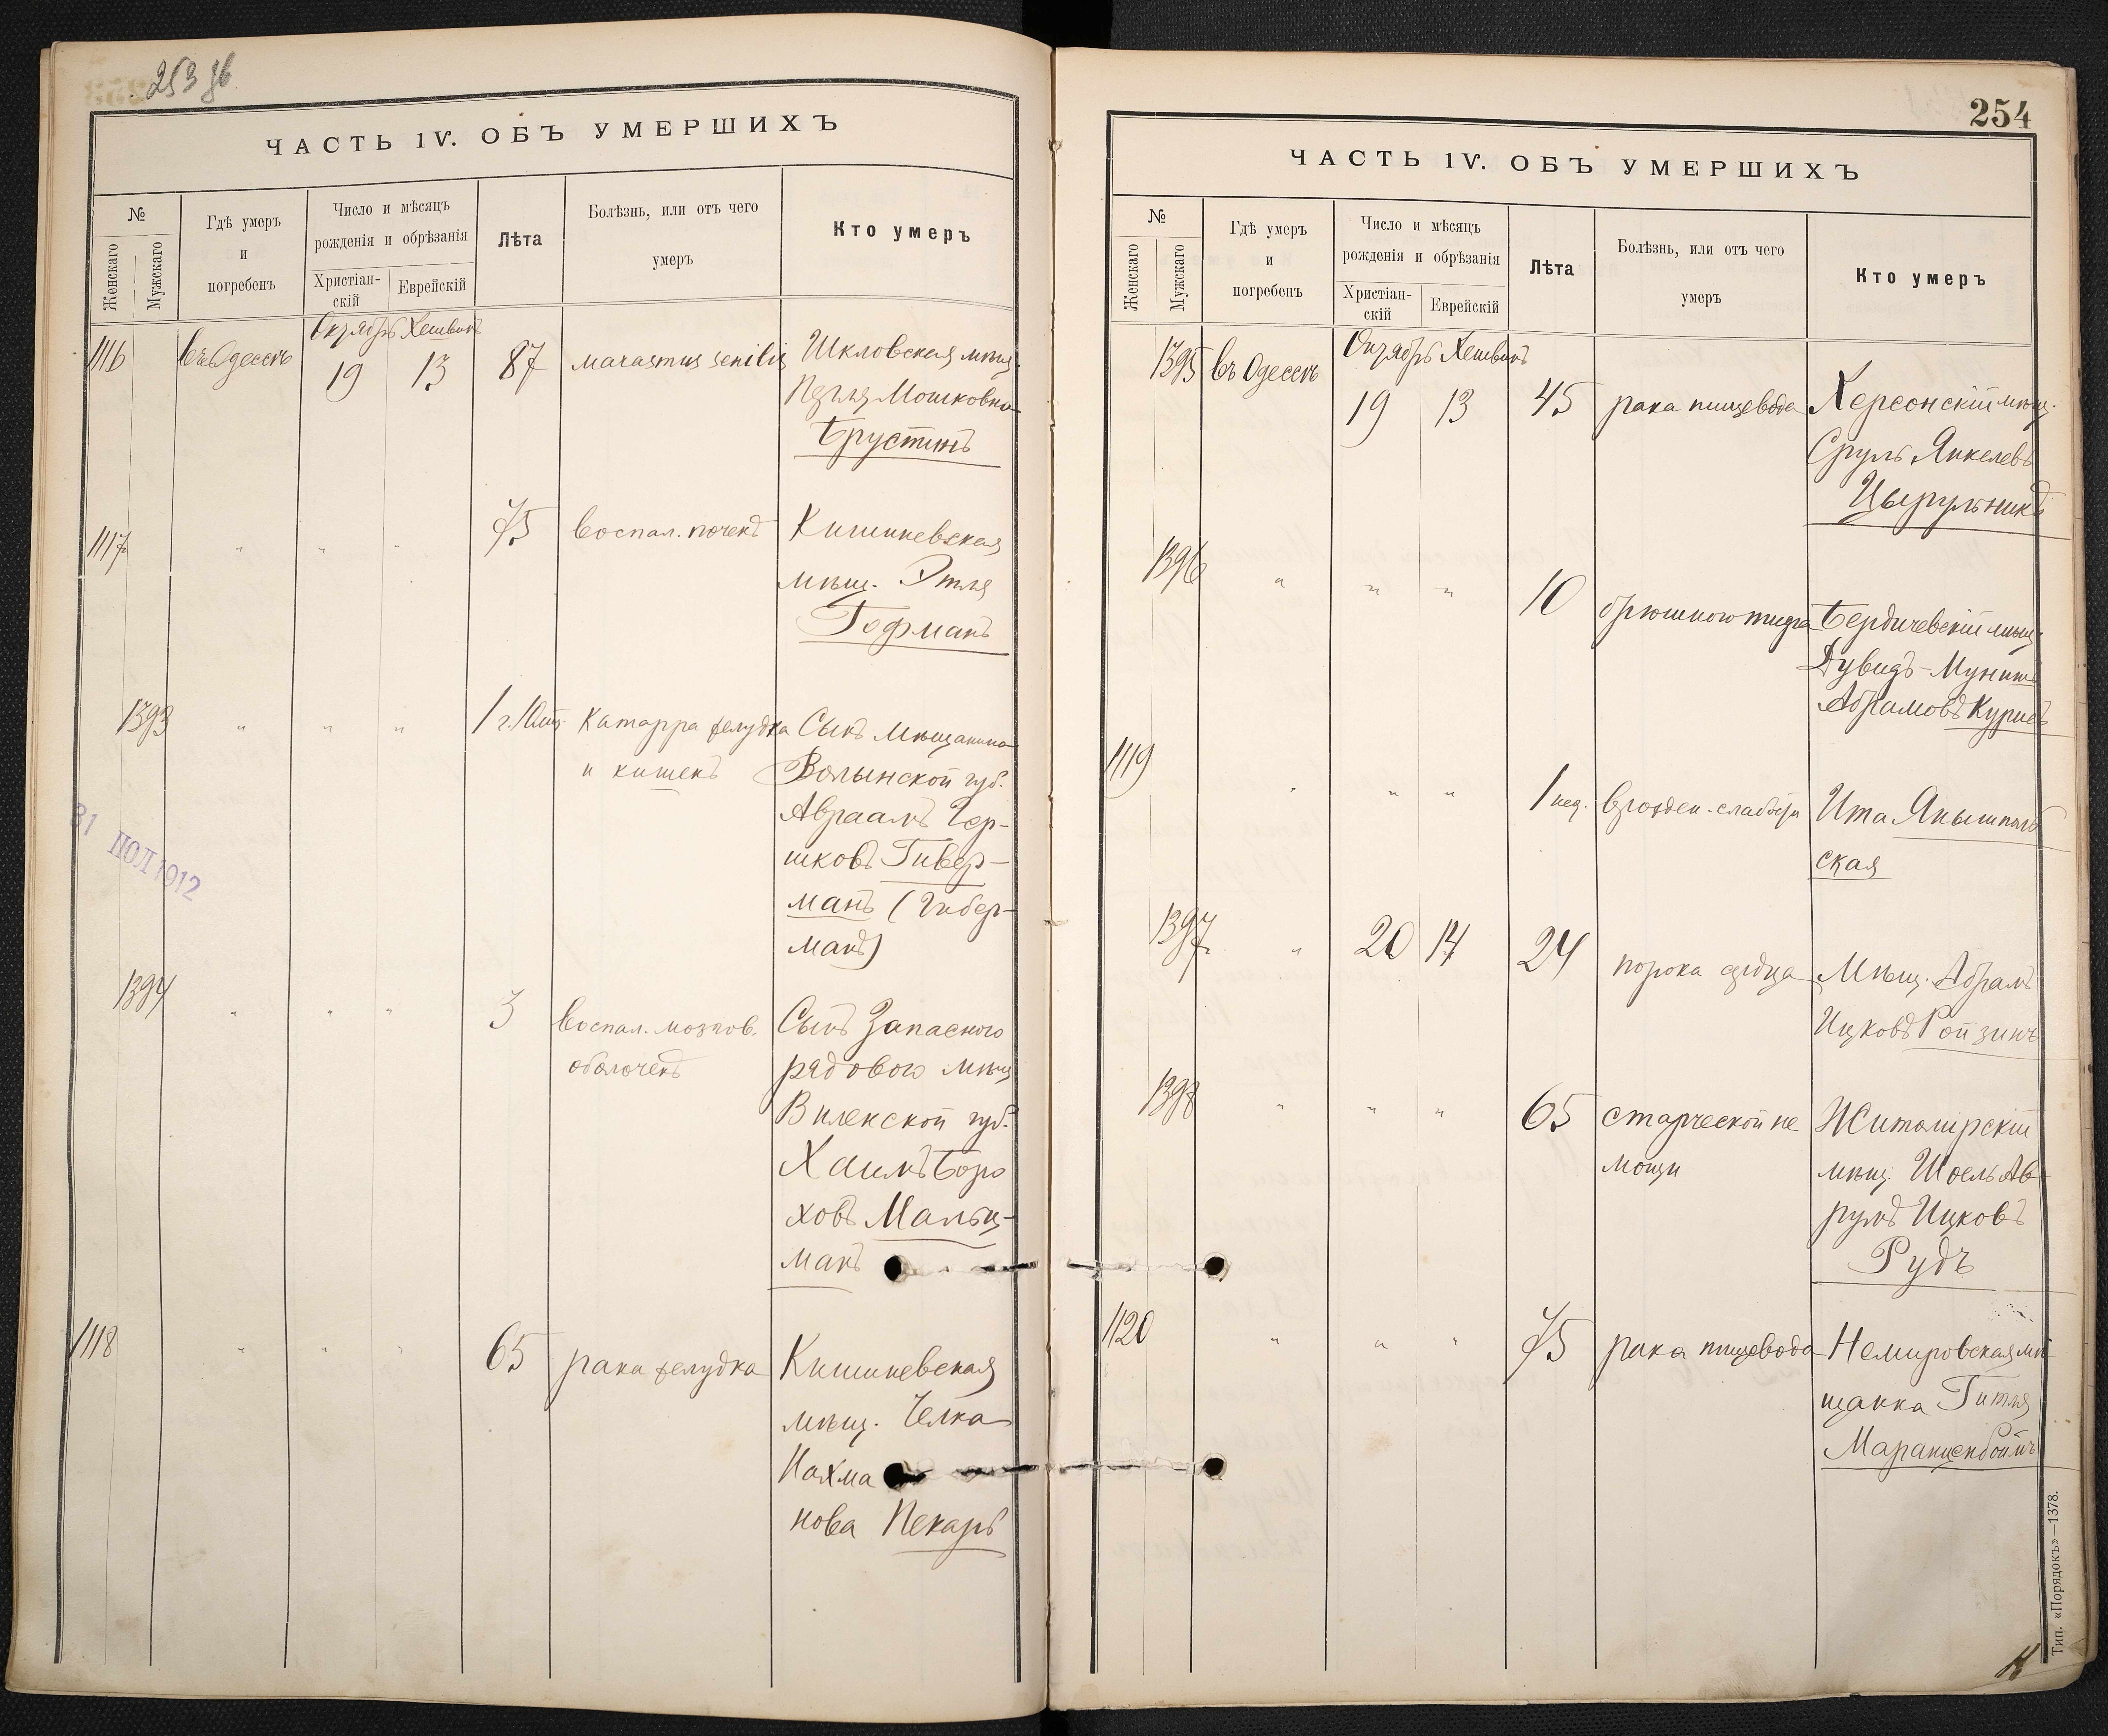 253 об
ЧАСТЬ IV. ОБЪ УМЕРШИХЪ
№
Женскаго
Мужскаго
Гдѣ умеръ
и
погребенъ
Число и мѣсяцъ
рожденія и обрѣзанія
Христіан-
скій
Еврейскій
Лѣта
Болѣзнь, или отъ чего
умеръ
Кто умеръ
Октябрь Хешвинъ
1116 въ Одессѣ 19 13 87 marasmus senilis Шкловская мѣщ.
Мошковна
Брустинъ
1117 " " " 75 воспал. почекъ Кишиневская
мѣщ. Этля
Гофманъ
1393 " " " 1 г. 10 м. Катарра желудка Сынъ мѣщанина
и кишекъ Волынской губ.
Авраамъ Гер-
шковъ Гивер-
манъ (Гибер-
манъ)
31 1912
1394 " " " 3 воспал. мозгов. Сынъ Запасного
оболочекъ рядового мѣщ
Виленской губ.
Хаимъ Боро
ховъ Мальц-
манъ
1118 " " " 65 рака желудка Кишиневская
мѣщ. Челка
Нахма
нова Пекарь
254
ЧАСТЬ IV. ОБЪ УМЕРШИХЪ
№
Женскаго
Мужскаго
Гдѣ умеръ
и
погребенъ
Число и мѣсяцъ
рожденія и обрѣзанія
Христіан-
скій
Еврейскій
Лѣта
Болѣзнь, или отъ чего
умеръ
Кто умеръ
Октябрь Хешвинъ
1395 въ Одессѣ 19 13 45 рака пищевода Херсонскій мѣщ.
Сруль Янкелевъ
Цырульникъ
1396 " " " 10 брюшного тифа Бердичевскій мѣщ.
Дувидъ-Мунишъ
Абрамовъ Курисъ
1119 " " " 1 нед. врожден. слабости Ита Янышполь
ская
1397 " 20 14 24 порока сердца Мѣщ. Абрамъ
Ицковъ Ройзинъ
1398 " " " 65 старческой не Житомірскій
мощи мѣщ. Шоель Ав
румъ Ицковъ
Рудъ
1120 " " " 75 рака пищевода Немировская мѣ
щанка Гитля
Маранценбоймъ
Тип. «Порядокъ»—1378.